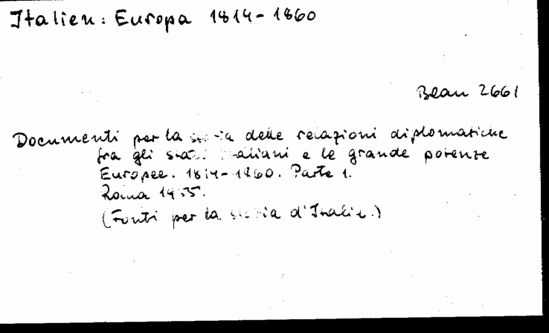 Italien: Europa 1814-1860
Bean 2661
Documenti per la storia delle relazioni diplomatiche
fra gli stati italiani e le grande potenze
Europee. 1814-1860. Parte 1.
Roma
(Fonti per la storia d'Italia.)